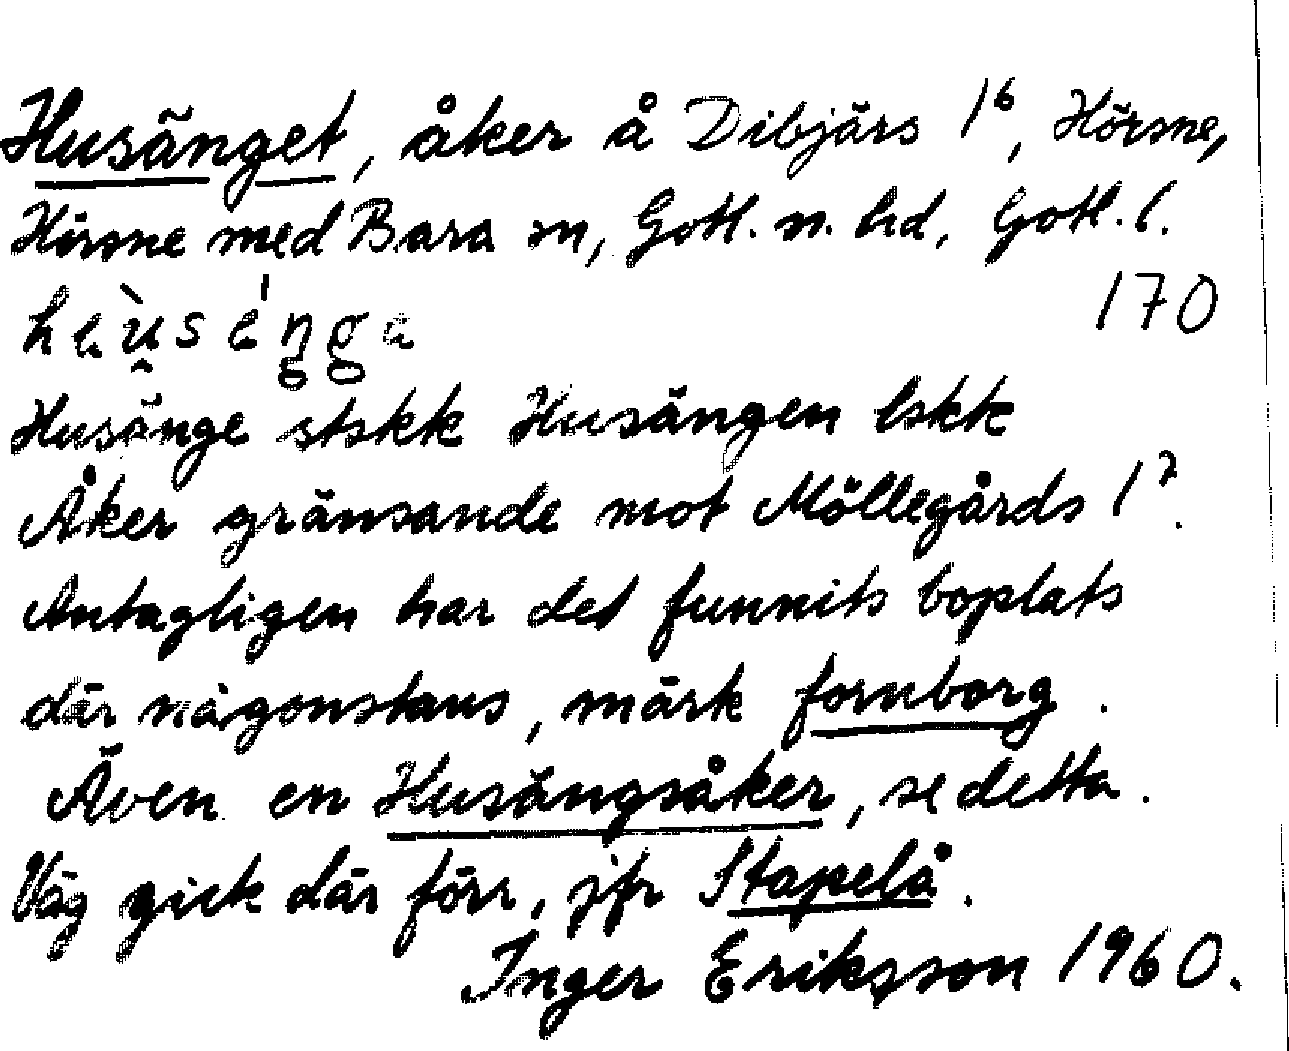 Husänget, åker å Dibjärs 1⁶, Hörsne,
Hörsne med Bara sn, Gotl. n. hd, Gotl. l.
170
Husänge stskk Husängen lskk
Åker gränsande mot Möllegårds 1⁷.
Antagligen har det funnits boplats
där någonstans, märk fornborg.
Även en Husängsåker, se detta.
Väg gick där förr, jfr Stapelå.
Inger Eriksson 1960.